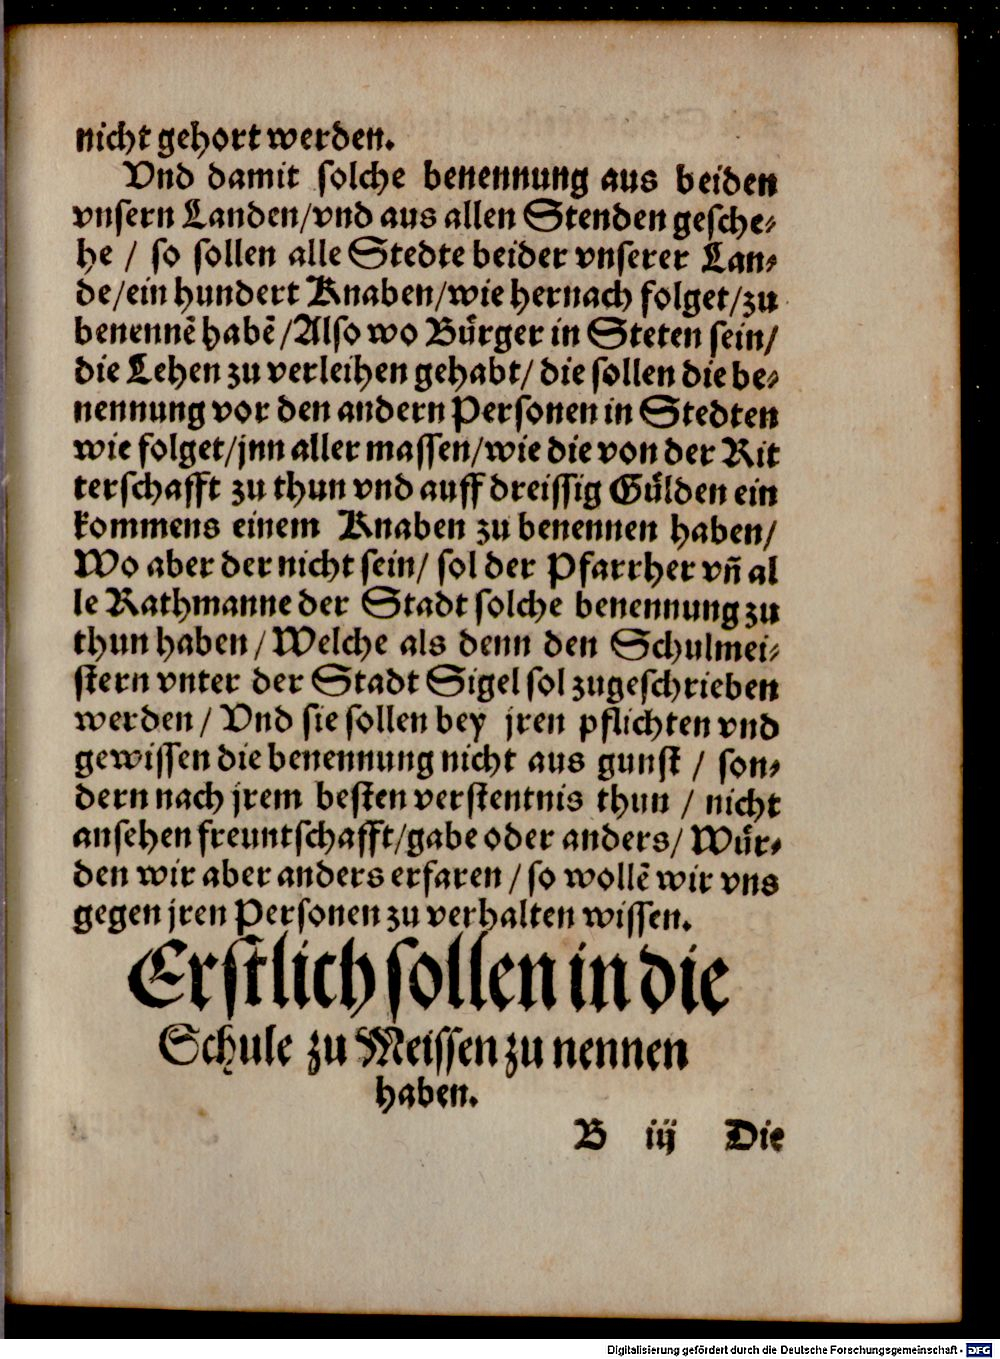 nicht gehort werden.
Vnd damit solche benennung aus beiden
vnsern Landen/vnd aus allen Stenden gesche⸗
he / so sollen alle Stedte beider vnserer Lan⸗
de/ein hundert Knaben/wie hernach folget/zu
benennẽ habẽ/Also wo Bürger in Steten sein/
die Lehen zu verleihen gehabt/ die sollen die be⸗
nennung vor den andern Personen in Stedten
wie folget/jnn aller massen/wie die von der Rit
terschafft zu thun vnd auff dreissig Gülden ein
kommens einem Knaben zu benennen haben/
Wo aber der nicht sein/ sol der Pfarrher vñ al
le Rathmanne der Stadt solche benennung zu
thun haben/Welche als denn den Schulmei⸗
stern vnter der Stadt Sigel sol zugeschrieben
werden/ Vnd sie sollen bey jren pflichten vnd
gewissen die benennung nicht aus gunst / son⸗
dern nach jrem besten verstentnis thun / nicht
ansehen freuntschafft/gabe oder anders/ Wür⸗
den wir aber anders erfaren/so wollẽ wir vns
gegen jren Personen zu verhalten wissen.
Erstlich sollen in die
Schule zu Meissen zu nennen
haben.
B iij Die
Digitalisierung gefördert durch die Deutsche Forschungsgemeinschaft - DFG